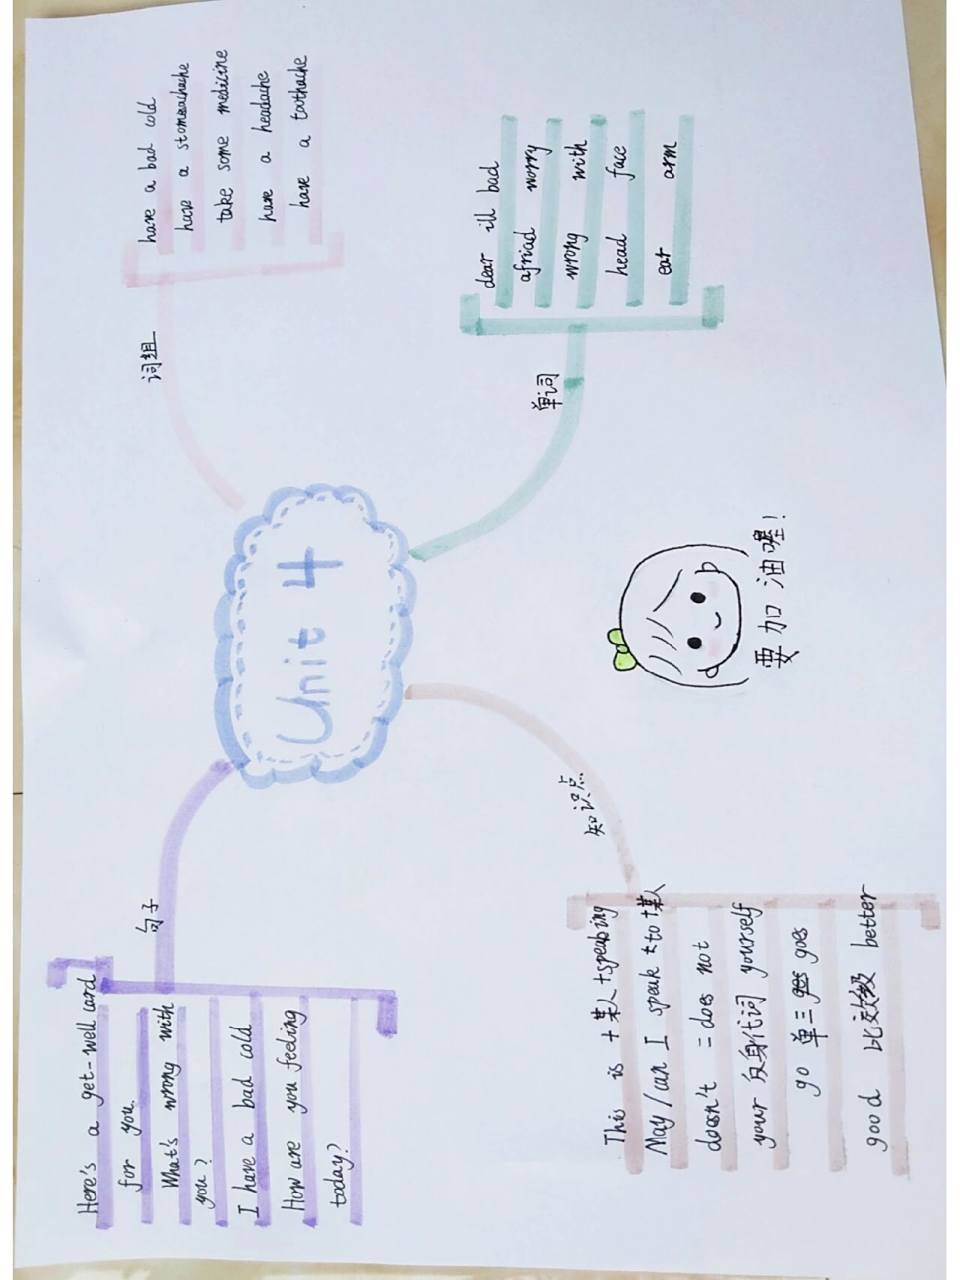 Unit 4
句子
Here's a get-well card
for you.
What's wrong with
you?
I have a bad cold
How are you feeling
today?
词组
have a bad cold
have a stomeachache
take some medicine
have a headache
have a toothache
单词
dear ill bad
afriad worry
wrong with
head face
ear arm
知识点
This is +某人+speabing
May/can I speak to+某人
doesn't = does not
your 反身代词 yourself
go 单三 goes
good 比较级 better
要加油喔!